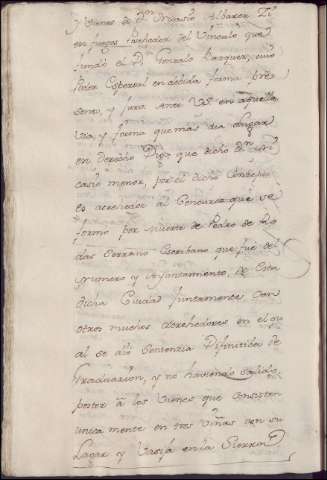 y vienes de Dn. Nicasio Albarez Zi
en fuegos Poseedor del Vinculo que
fundó el D. Gonzalo Bazquez, cuio
Poder Especial en devida forma pre
sento, y juro Ante Vs. en aquella
via, y forma que mas aia Lugar
en derecho Digo, que dicho Dn. Ni
casio menor, por el dicho Concepto
es acrehedor al Concurso que se
formó por Muerte de Pedro de Ro
das Serrano Escribano que fue de
numero y Ayuntamiento, de esta
dicha Ciudad juntamente, con
otros muchos Acrehedores en el qu
al se dio Sentencia Difinitiba de
Graduazion, y no haviendo salido
postor á los Vienes que consisten
unicamente en tres viñas con su
Lagar y Vasija en la Sierra